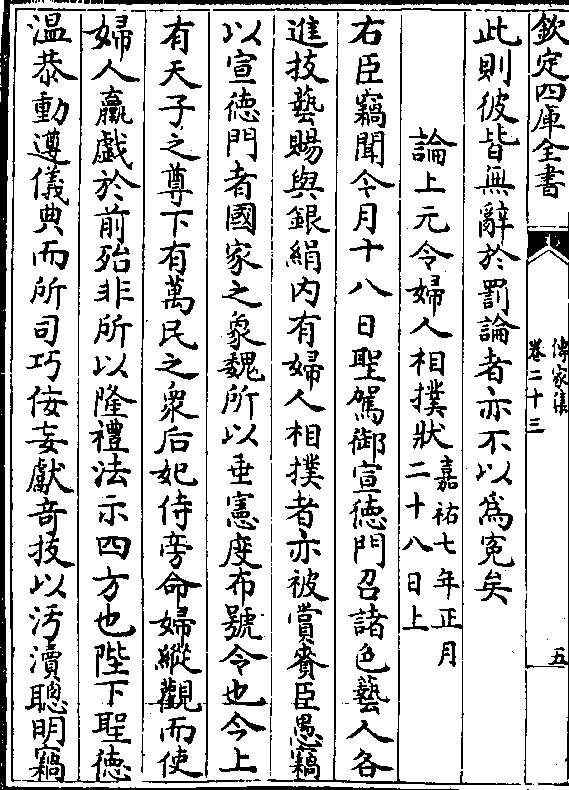 欽定四庫全書
傳家集
卷二十三
五
此則彼皆無辭於罰論者亦不以為寃矣
論上元令婦人相撲狀
嘉祐七年正月
二十八日上
右臣竊聞今月十八日聖駕御宣徳門召諸色藝人各
進技藝賜與銀絹内有婦人相撲者亦被賞賚臣愚竊
以宣徳門者國家之象魏所以垂憲度布號令也今上
有天子之尊下有萬民之衆后妃侍旁命婦縱觀而使
婦人臝戲於前殆非所以隆禮法示四方也陛下聖徳
温恭動遵儀典而所司巧佞妄獻竒技以汚瀆聰明竊